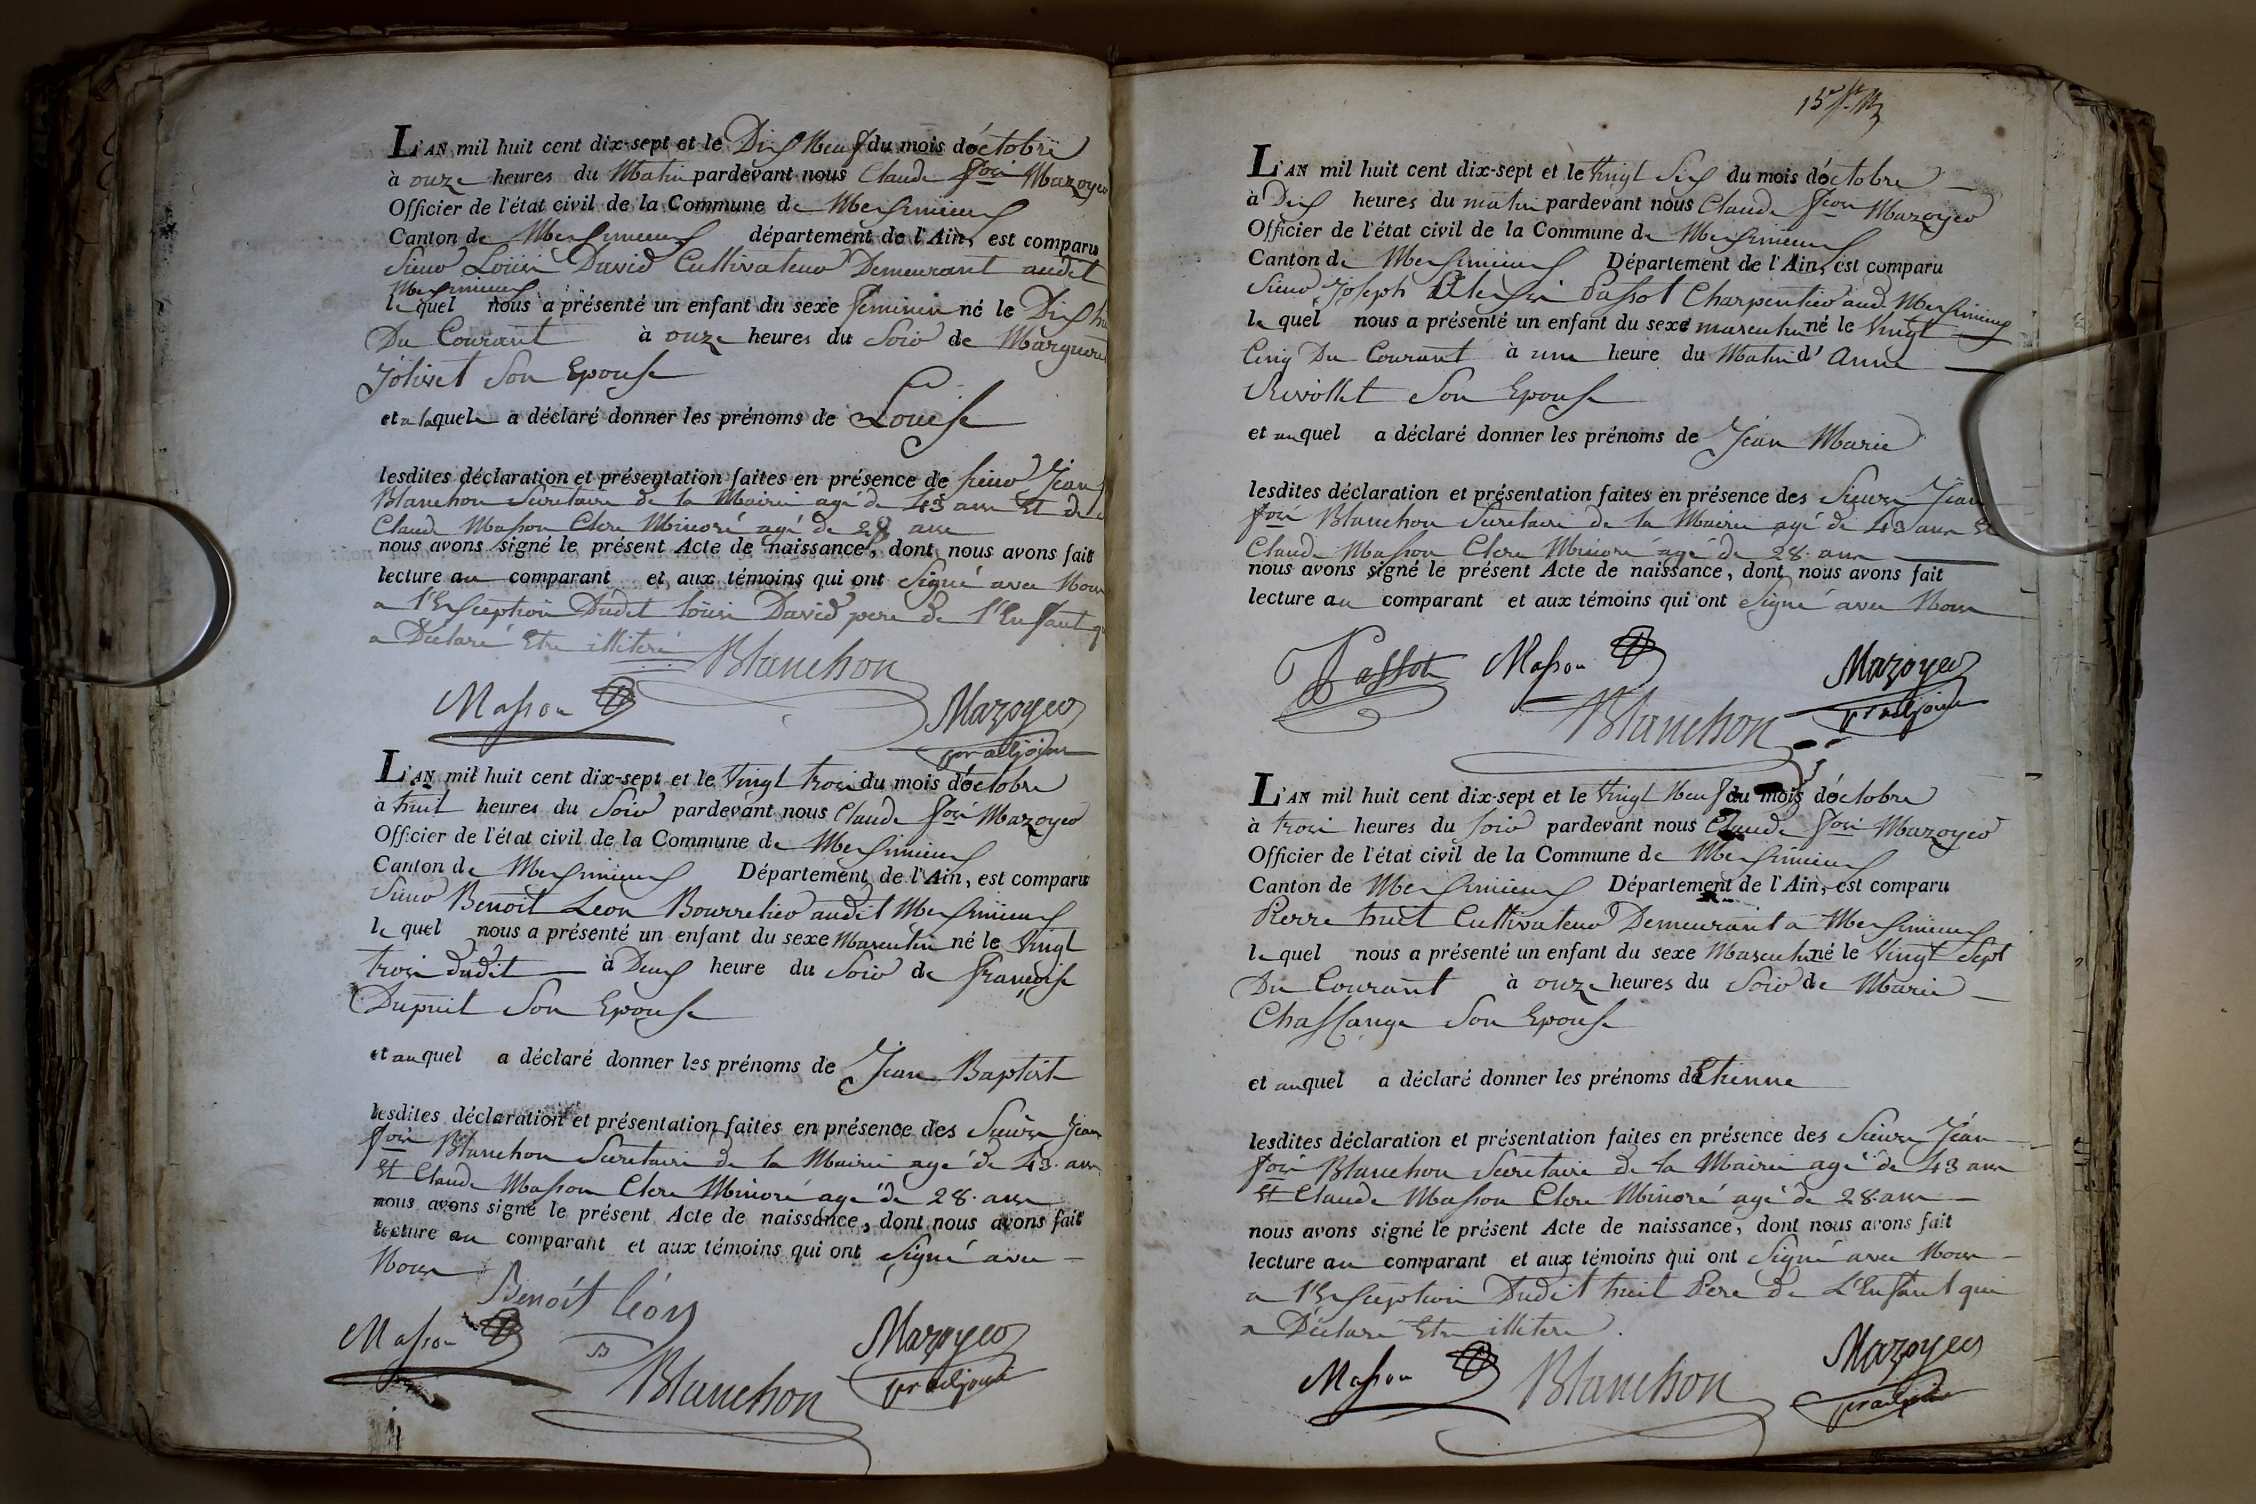 L'AN mil huit cent dix-sept et le Dix Neuf du mois d'octobre
à onze heures du Matin pardevant nous Claude fçois Mazoyer
Officier de l'état civil de la Commune de Meximieux
Canton de Meximieux département de l'Ain, est comparu
Sieur Louis David Cultivateur Demeurant audit
Meximieux
le quel nous a présenté un enfant du sexe feminin né le Dix hu
Du Courant à onze heures du Soir de Marguerit
Jolivet Son Epouse
et a laquelle a déclaré donner les prénoms de Louise
lesdites déclaration et présentation faites en présence de sieur Jean f
Blanchon Secretaire de la Mairie agé de 43 ans Et de
Claude Masson Clerc Minoré agé de 28 ans
nous avons signé le présent Acte de naissance, dont nous avons fait
lecture au comparant et aux témoins qui ont Signé avec Nous
a l'Exception Dudit Louis David pere de l'Enfant q
a Déclaré Etre illiteré
Blanchon
Masson
Mazoyer
pr adjoint
L'AN mil huit cent dix-sept et le Vingt trois du mois d'octobre
à huit heures du Soir pardevant nous Claude fçois Mazoyer
Officier de l'état civil de la Commune de Meximieux
Canton de Meximieux Département de l'Ain, est comparu
Sieur Benoit Leon Bourrelier audit Meximieux
le quel nous a présenté un enfant du sexe Masculin né le Vingt
trois dudit à Deux heure du Soir de françoise
Dupuit Son Epouse
et au quel a déclaré donner les prénoms de Jean Baptiste
lesdites déclaration et présentation faites en présence des Sieurs Jean
fçois Blanchon Secretaire de la Mairie agé de 43. ans
Et Claude Masson Clerc Minoré agé de 28. ans
nous avons signé le présent Acte de naissance, dont nous avons fait
lecture au comparant et aux témoins qui ont Signé avec
Nous
Benoit léon
Masson
B
Blanchon
Mazoyer
pr adjoint
15e
L'AN mil huit cent dix-sept et le Vingt Six du mois d'octobre
à Dix heures du matin pardevant nous Claude fçois Mazoyer
Officier de l'état civil de la Commune de Meximieux
Canton de Meximieux Département de l'Ain, est comparu
Sieur Joseph Passot Charpentier aud. Meximieux
le quel nous a présenté un enfant du sexe masculin né le Vingt
Cinq Du Courant à une heure du Matin d' Anne
Revollet Son Epouse
et au quel a déclaré donner les prénoms de Jean Marie
lesdites déclaration et présentation faites en présence des Sieurs Jean
fçois Blanchon Secretaire de la Mairie agé de 43 ans Et
Claude Masson Clerc Minoré agé de 28. ans
nous avons signé le présent Acte de naissance, dont nous avons fait
lecture au comparant et aux témoins qui ont Signé avec Nous
Passot
Masson
Mazoyer
Blanchon
pr adjoint
L'AN mil huit cent dix-sept et le Vingt Neuf du mois d'octobre
à trois heures du soir pardevant nous Claude fçois Mazoyer
Officier de l'état civil de la Commune de Meximieux
Canton de Meximieux Département de l'Ain, est comparu
Pierre huit Cultivateur Demeurant a Meximieux
le quel nous a présenté un enfant du sexe Masculin né le Vingt Sept
Du Courant à onze heures du Soir de Marie
Chassange Son Epouse
et au quel a déclaré donner les prénoms de Etienne
lesdites déclaration et présentation faites en présence des Sieurs Jean
fçois Blanchon Secretaire de la Mairie agé de 43 ans
Et Claude Masson Clerc Minoré agé de 28 ans
nous avons signé le présent Acte de naissance, dont nous avons fait
lecture au comparant et aux témoins qui ont Signé avec Nous
a l'Exception Dudit huit Pere de L'Enfant qui
a Déclaré Etre illiteré.
Masson
Blanchon
Mazoyer
pr adjoint